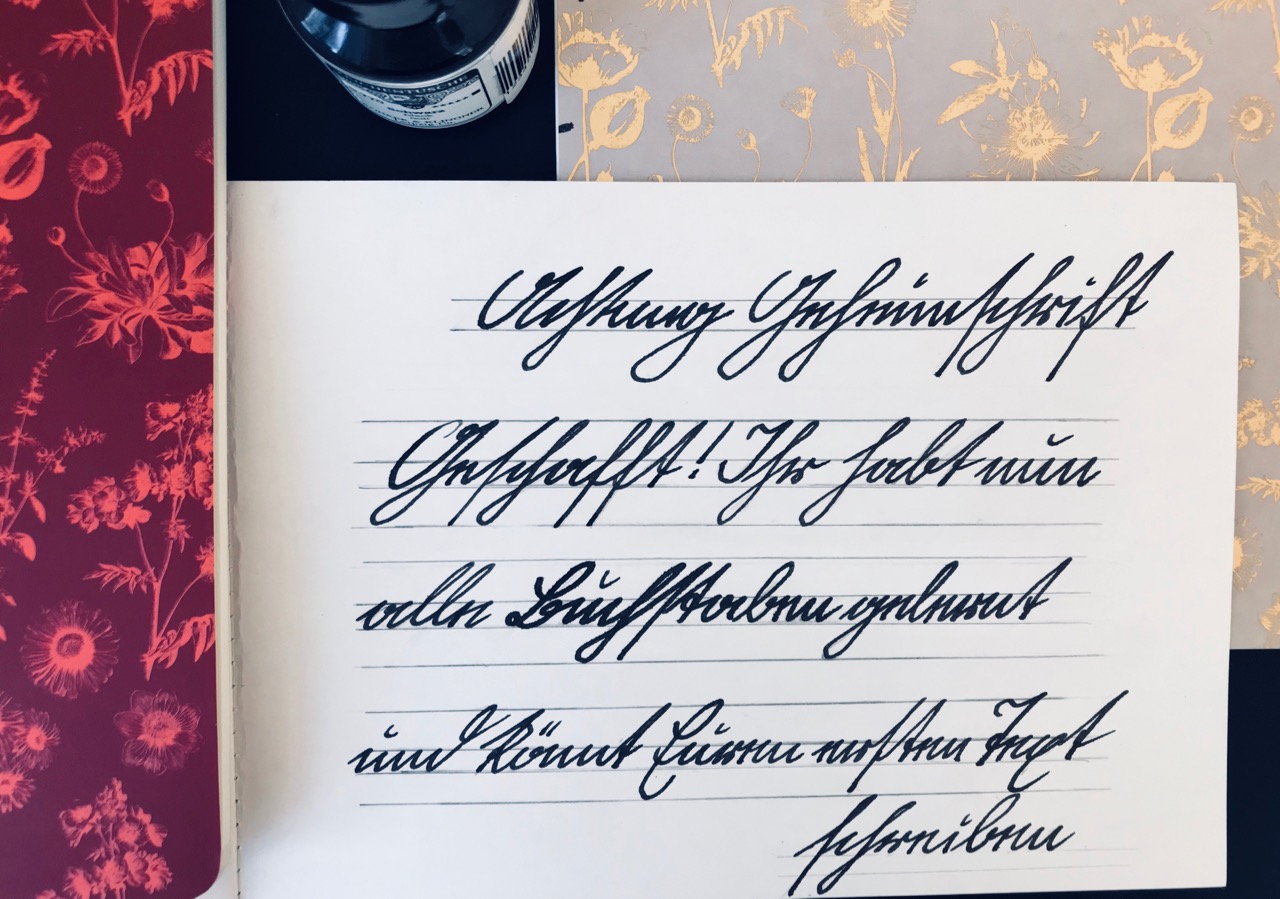 ZEICHENTUSCHE
Schwarz
Achtung Geheimschrift
Geschafft! Ihr habt nun
alle Buchstaben gelernt
und könnt Euren ersten Text
schreiben